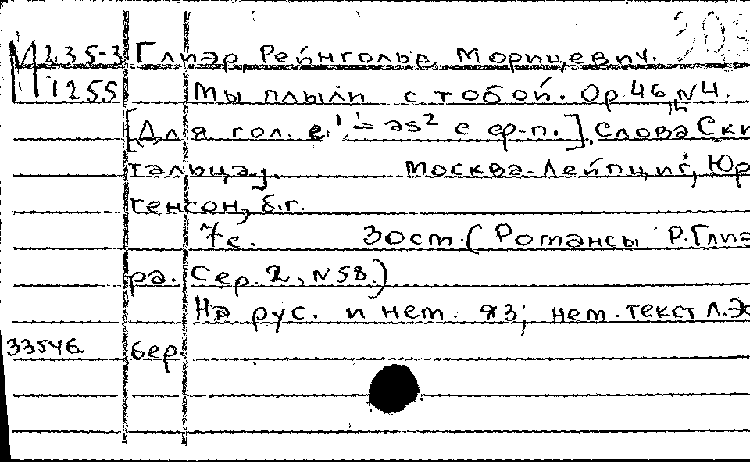 М 235-3 Глиэр, Рейнгольд Морицевич.
1255 Мы плыли с тобой. Op. 46, N4.
[Для гол. e.¹ – as² с ф-п.], слова Ски
тальца]. Москва-Лейпциг, Юр
генсон, б.г.
7с. 30ст. (Романсы Р. Глиэ
ра. Сер. 2, N58.)
На рус. и нем. яз; нем. текст Л.
33546 бер.